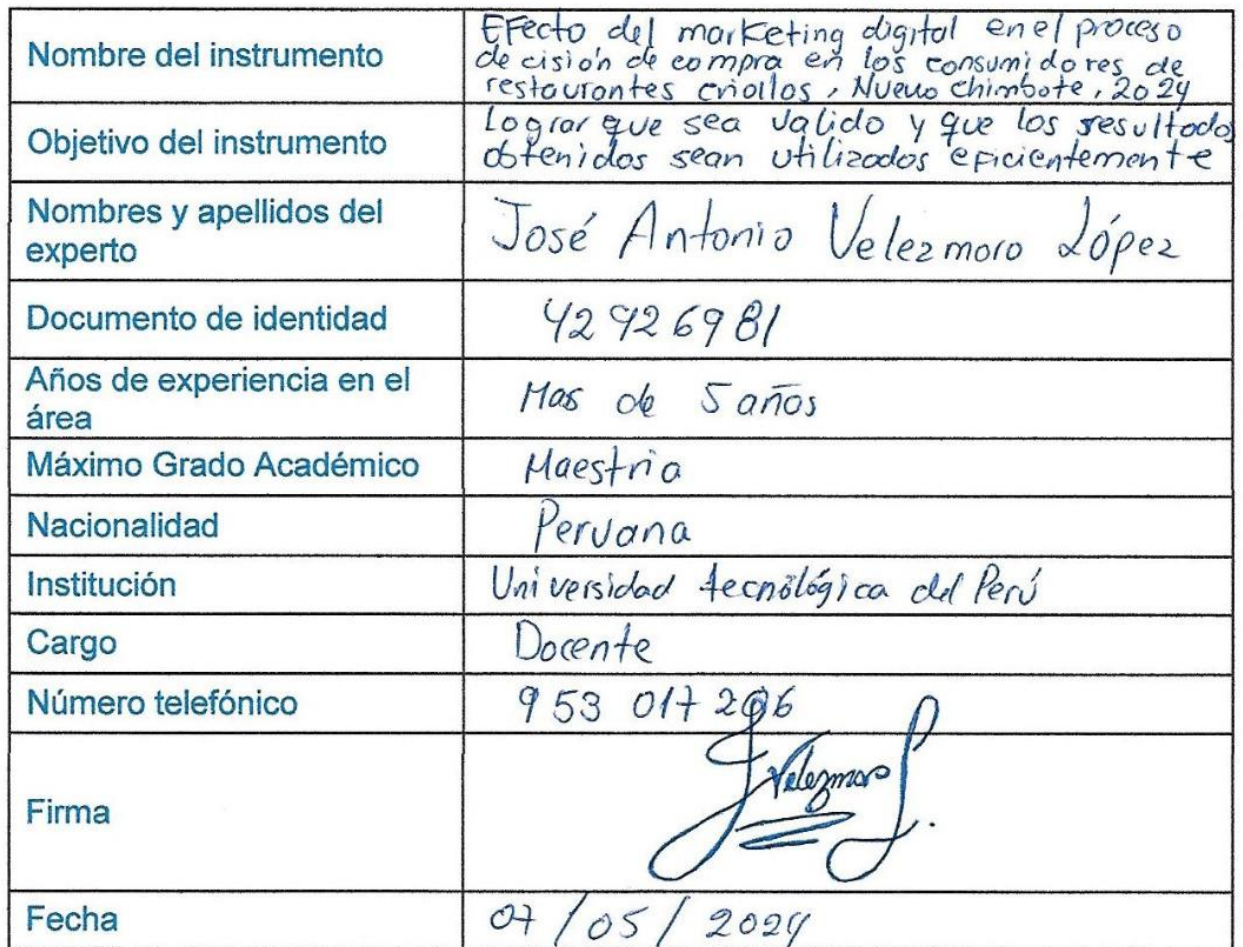 Nombre del instrumento
Efecto del marketing digital en el proceso
decisión de compra en los consumidores de
restaurantes criollos, Nuevo Chimbote, 2024
Objetivo del instrumento
Lograr que sea valido y que los resultados
obtenidos sean utilizados eficientemente
Nombres y apellidos del
experto
José Antonio Velezmoro López
Documento de identidad
42926981
Años de experiencia en el
área
Mas de 5 años
Máximo Grado Académico
Maestria
Nacionalidad
Peruana
Institución
Universidad tecnológica del Perú
Cargo
Docente
Número telefónico
953 017
Firma
Velezmoro
Fecha
07/05/2024